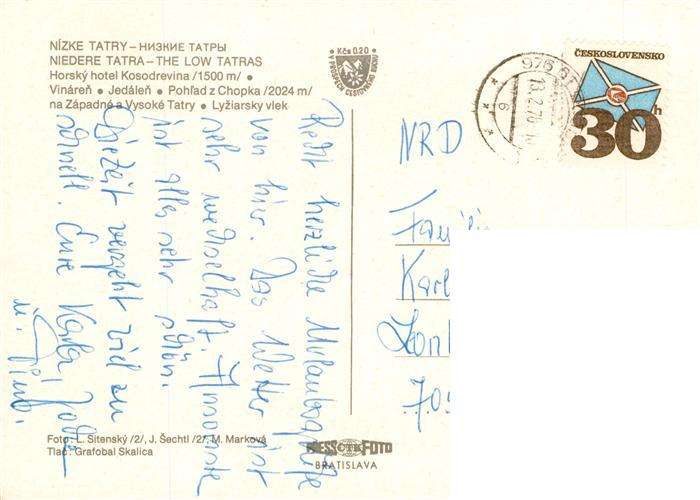 NÍZKE TATRY – НИЗКИЕ ТАТРЫ
NIEDERE TATRA – THE LOW TATRAS
Horský hotel Kosodrevina /1500 m/ ●
Vináreň ● Jedáleň ● Pohľad z Chopka /2024 m/
na Západné a Vysoké Tatry ● Lyžiarsky vlek
Kčs 0.20
ČESKOSLOVENSKO
30 h
976
NRD
Karl
70
Recht herzliche Urlaubsgrüße
von hier. Das Wetter ist
sehr wechselhaft. Ansonsten
ist alles sehr schön.
Die Zeit vergeht viel zu
schnell. Eure
u.
Foto: L. Sitenský /2/, J. Šechtl /2/, M. Marková
Tlač: Grafobal Skalica
PRESSFOTO
BRATISLAVA